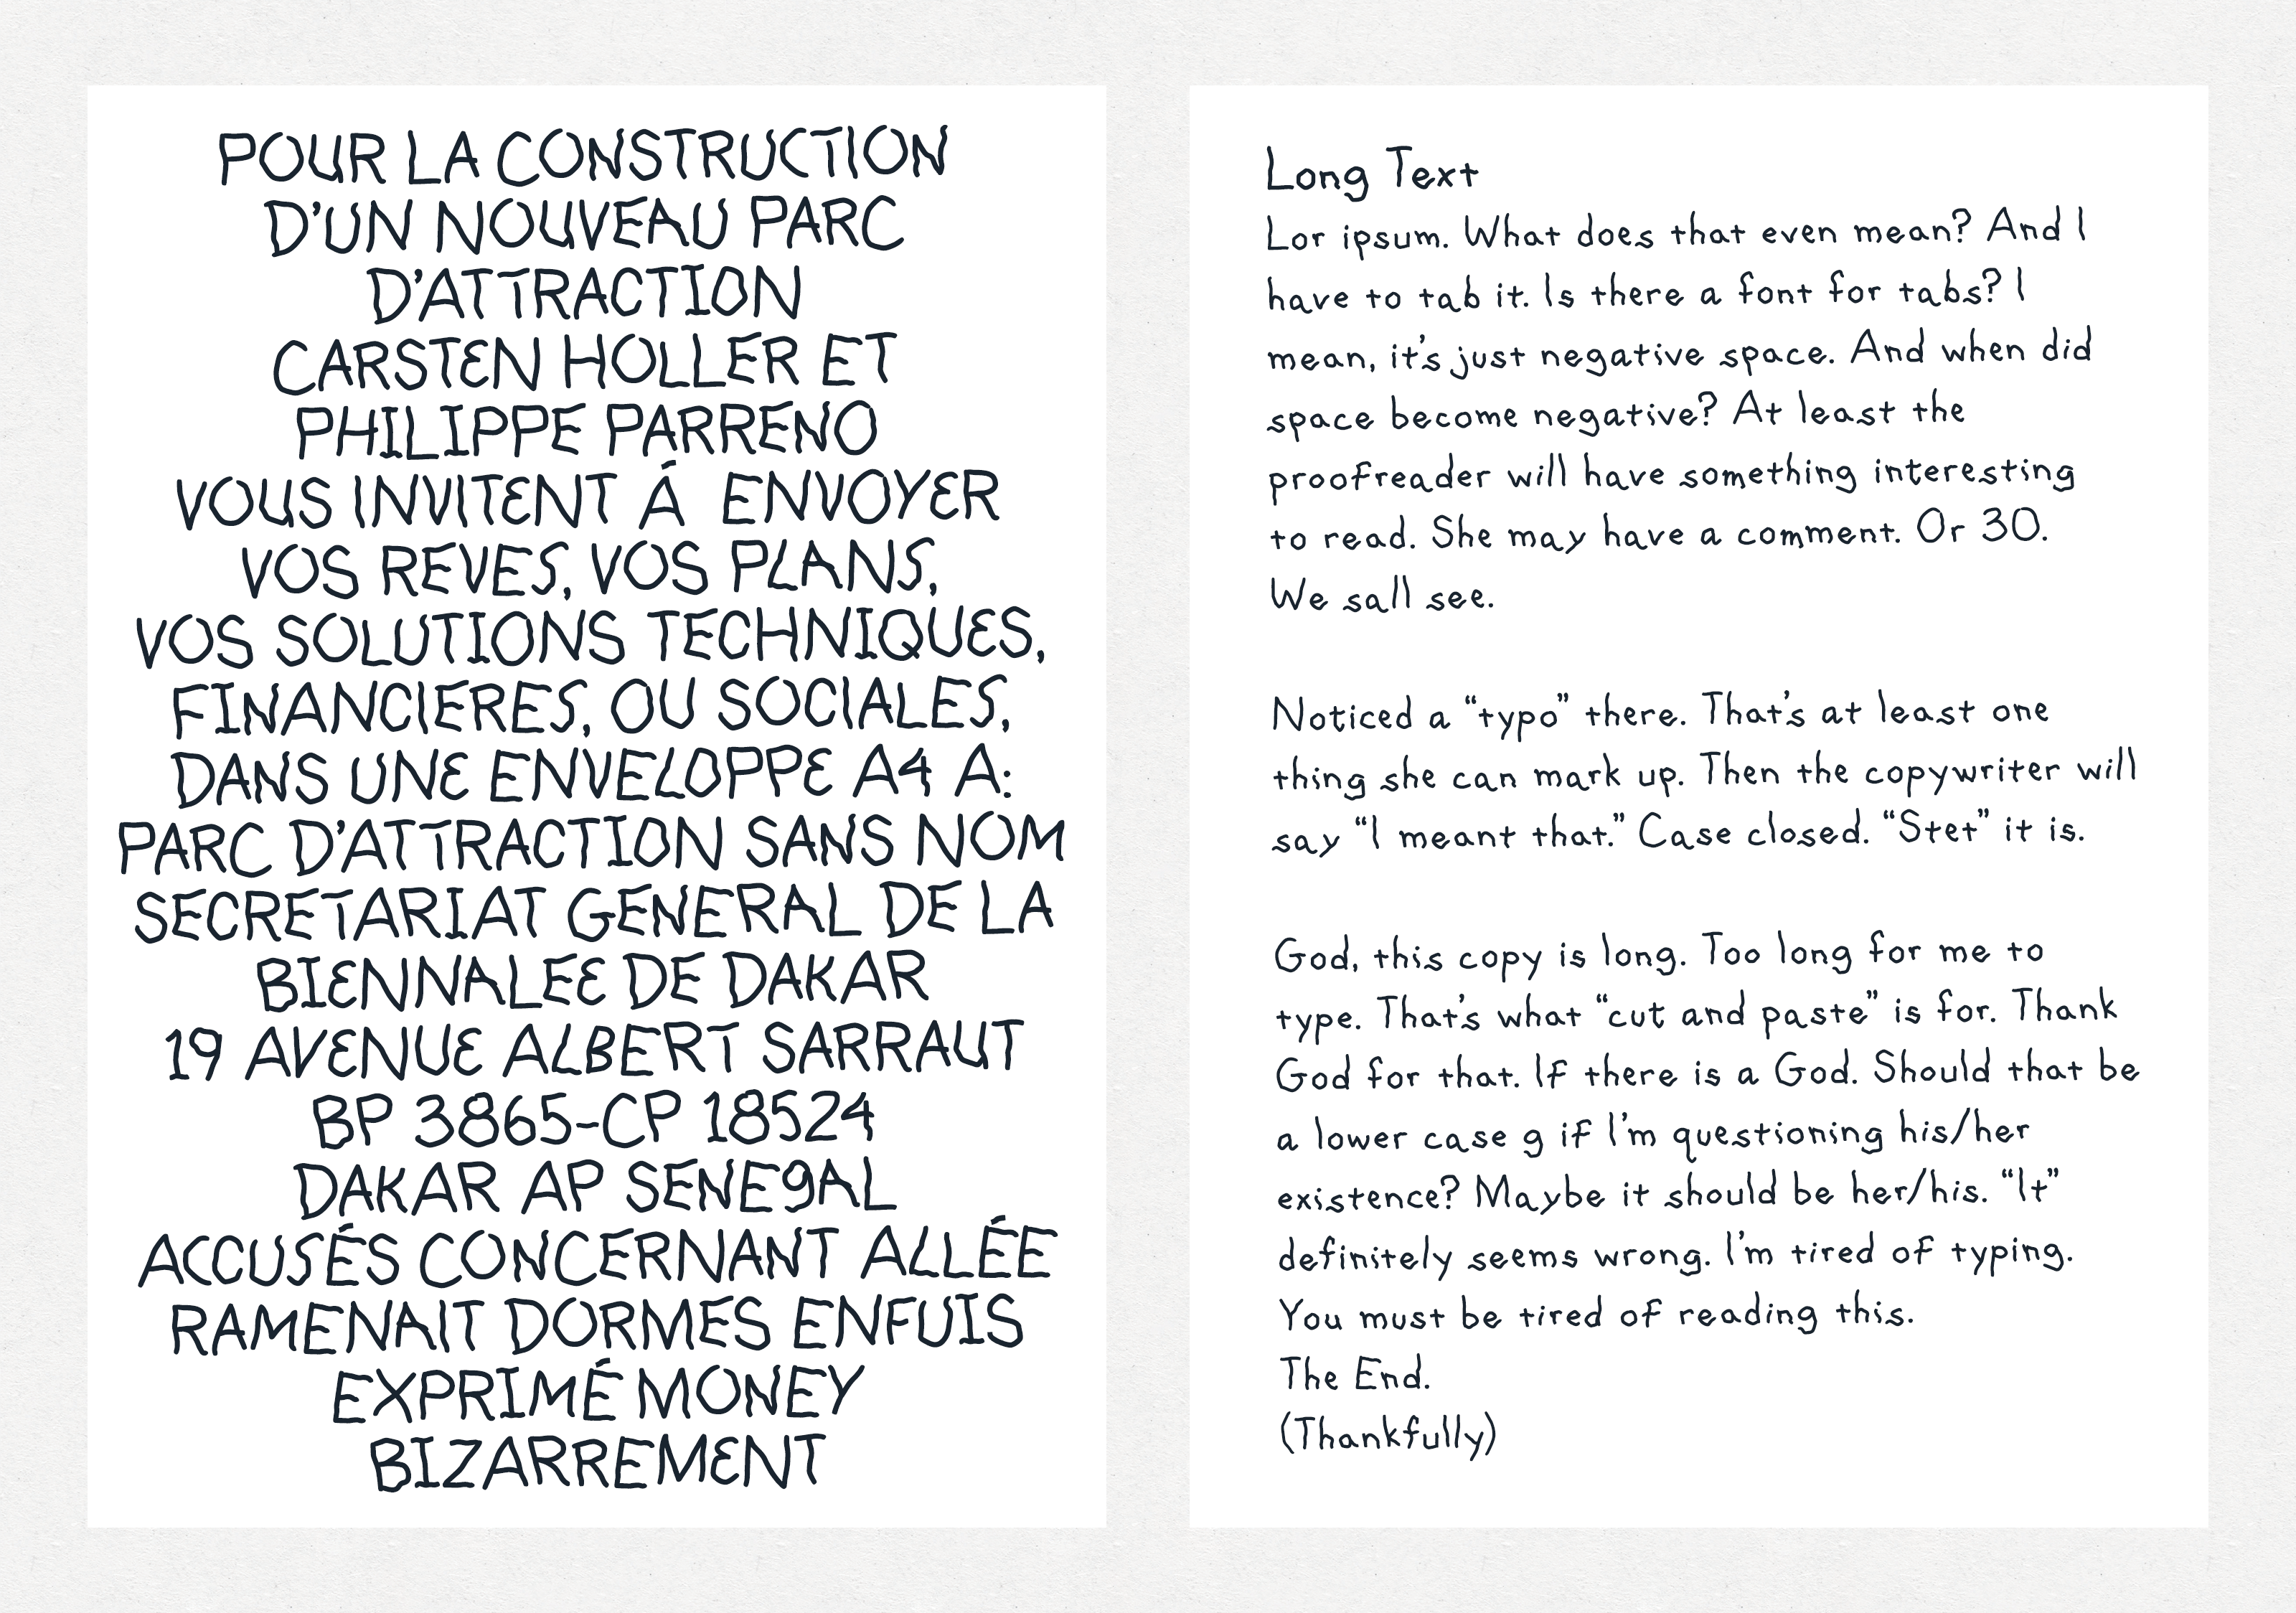 POUR LA CONSTRUCTION
D'UN NOUVEAU PARC
D'ATTRACTION
CARSTEN HOLLER ET
PHILIPPE PARRENO
VOUS INVITENT Á ENVOYER
VOS REVES, VOS PLANS,
VOS SOLUTIONS TECHNIQUES,
FINANCIERES, OU SOCIALES,
DANS UNE ENVELOPPE A4 A:
PARC D'ATTRACTION SANS NOM
SECRETARIAT GENERAL DE LA
BIENNALEE DE DAKAR
19 AVENUE ALBERT SARRAUT
BP 3865-CP 18524
DAKAR AP SENEgAL
ACCUSÉS CONCERNANT ALLÉE
RAMENAIT DORMES ENFUIS
EXPRIMÉ MONEY
BIZARREMENT
Long Text
Lor ipsum. What does that even mean? And I
have to tab it. Is there a font for tabs? I
mean, it's just negative space. And when did
space become negative? At least the
proofreader will have something interesting
to read. She may have a comment. Or 30.
We sall see.
Noticed a “typo” there. That's at least one
thing she can mark up. Then the copywriter will
say “I meant that.” Case closed. “Stet” it is.
God, this copy is long. Too long for me to
type. That's what “cut and paste” is for. Thank
God for that. If there is a God. Should that be
a lower case g if I'm questioning his/her
existence? Maybe it should be her/his. “It”
definitely seems wrong. I'm tired of typing.
You must be tired of reading this.
The End.
(Thankfully)